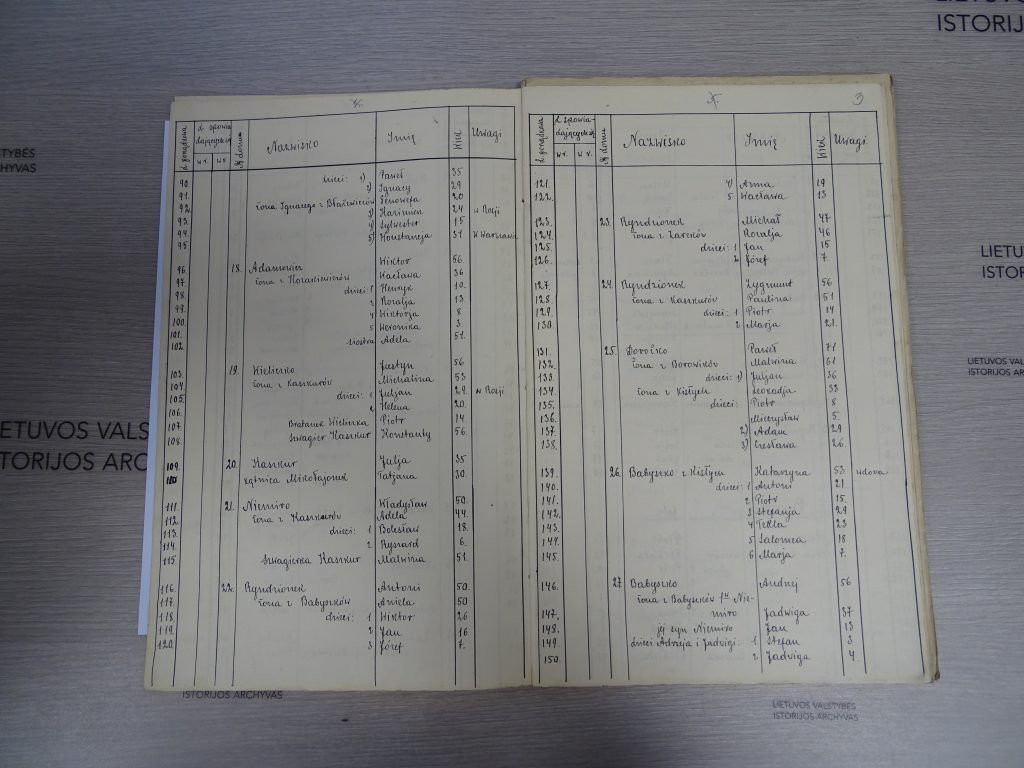 LIETUVOS VALSTYBĖS
ISTORIJOS ARCHYVAS
3
L. porządkowa
L. spowia-
dających się
w r.
w r.
N domu
Nazwisko
Imię
Wiek
Uwagi
90. dzieci: 1) Paweł 35
91. 2) Ignacy 29
92. żona Ignacego z Błażewiczów Genowefa 20
93. 3) Kazimierz 24 w Rosji
94. 4) Sylwester 15
95 5) Konstancja 31 W Warszawie
96. 18. Adamowicz Wiktor 56
97. żona z Wacława 36
98. dzieci: 1 Henryk 10.
99. 2 Rozalja 13.
100. 4 Wiktorja 8
101. 5 Weronika 3.
102. siostra Adela 51.
103. 19. Wieliczko Justyn 56
104. żona z Kaszkurów Michalina 53
105. dzieci: 1 Juljan 24. w Rosji
106. 2 Helena 20.
107. Bratanek Wieliczka Piotr 14
108. szwagier Kaszkur Konstanty 56.
109. 20. Kaszkur Julja 35
110 Mikołajonek Tatjana 30.
111. 21. Niemiro Władysław 50.
112. żona z Kaszkurów Adela 44.
113. dzieci: 1 Bolesław 18.
114. 2 Ryszard 6.
115. Szwagierka Kaszkur Malwina 51
116. 22. Ryndzionek Antoni 50.
117. żona z Babyszków Aniela 50
118. dzieci: 1 Wiktor 26
119. 2 Jan 16
120. 3 Józef 7.
L. porządkowa
L. spowia-
dających się
w r.
w r.
N domu
Nazwisko
Imię
Wiek
Uwagi
121. 4) Anna 19
122. 5 Wacława 13
123. 23. Ryndzionek Michał 47
124. żona z Rozalja 46
125. dzieci: 1 Jan 15
126. 2 Józef 7
127. 24. Ryndzionek Zygmunt 56
128 żona z Kaszkurów Paulina 51
129. dzieci: 1 Piotr 14
130. 2 Marja 21.
131. 25. Dorożko Paweł 71
132. żona z Borowików Malwina 61
133. dzieci: 1) Juljan 36
134. żona z Kisłych Leokadja 33
135. dzieci: Piotr 8
136. Mieczysław 5.
137. 2) Adam 29
138. 3) Czesława 26
139. 26. Babyszko z Kisłych Katarzyna 53 wdowa.
140. dzieci: 1 Antoni 21.
141. 2 Piotr 15.
142. 3 Stefanja 29
143. 4 Tekla 23
144. 5 Salomea 18
145. 6 Marja 7.
146. 27. Babyszko Andrzej 56
żona z Babyszków Nie-
147. miro Jadwiga 37
148. jej syn Niemiro Jan 13
149. dzieci Adrzeja i Jadwigi. 1 Stefan 3
150. 2 Jadwiga 4.
ETUVOS VALS
STORIJOS ARC
LIETUVOS VALSTYBĖS
ISTORIJOS ARCHYVAS
ISTORIJOS ARCHYVAS